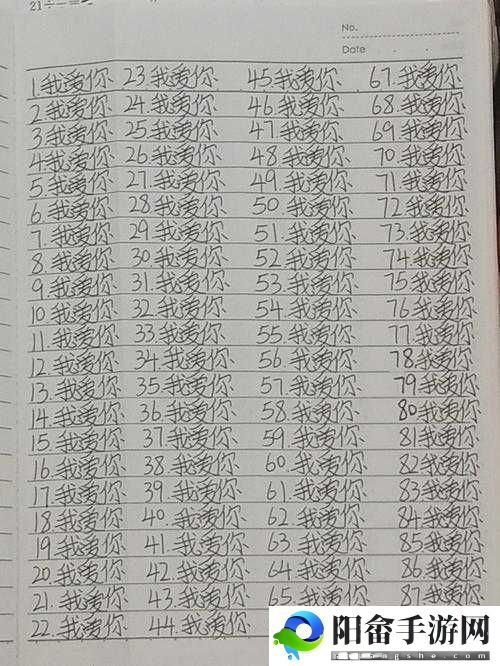 21÷
No.
Date
1.我爱你 23.我爱你 45.我爱你 67.我爱你
2.我爱你 24.我爱你 46.我爱你 68.我爱你
3.我爱你 25.我爱你 47.我爱你 69.我爱你
4.我爱你 26.我爱你 48.我爱你 70.我爱你
5.我爱你 27.我爱你 49.我爱你 71.我爱你
6.我爱你 28.我爱你 50.我爱你 72.我爱你
7.我爱你 29.我爱你 51.我爱你 73.我爱你
8.我爱你 30.我爱你 52.我爱你 74.我爱你
9.我爱你 31.我爱你 53.我爱你 75.我爱你
10.我爱你 32.我爱你 54.我爱你 76.我爱你
11.我爱你 33.我爱你 55.我爱你 77.我爱你
12.我爱你 34.我爱你 56.我爱你 78.我爱你
13.我爱你 35.我爱你 57.我爱你 79.我爱你
14.我爱你 36.我爱你 58.我爱你 80.我爱你
15.我爱你 37.我爱你 59.我爱你 81.我爱你
16.我爱你 38.我爱你 60.我爱你 82.我爱你
17.我爱你 39.我爱你 61.我爱你 83.我爱你
18.我爱你 40.我爱你 62.我爱你 84.我爱你
19.我爱你 41.我爱你 63.我爱你 85.我爱你
20.我爱你 42.我爱你 64.我爱你 86.我爱你
21.我爱你 43.我爱你 65.我爱你 87.我爱你
22.我爱你 44.我爱你
阳畲手游网